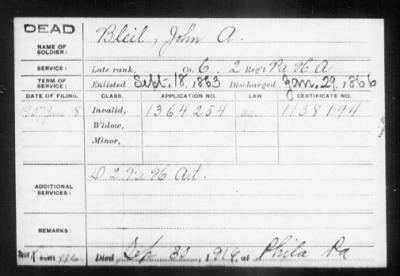 DEAD
NAME OF SOLDIER: Bleil, John A.
SERVICE: Late rank, Co. G, 2 Reg't Pa H A
TERM OF SERVICE: Enlisted Sept. 18, 1863 Discharged Jan. 29, 1866
DATE OF FILING. CLASS. APPLICATION NO. LAW. CERTIFICATE NO.
1907 June 8 Invalid, 1364254 1138194
Widow,
Minor,
ADDITIONAL SERVICES: D 2 Pa H Art.
REMARKS:
Died Sep 30, 1916, at Phila Pa